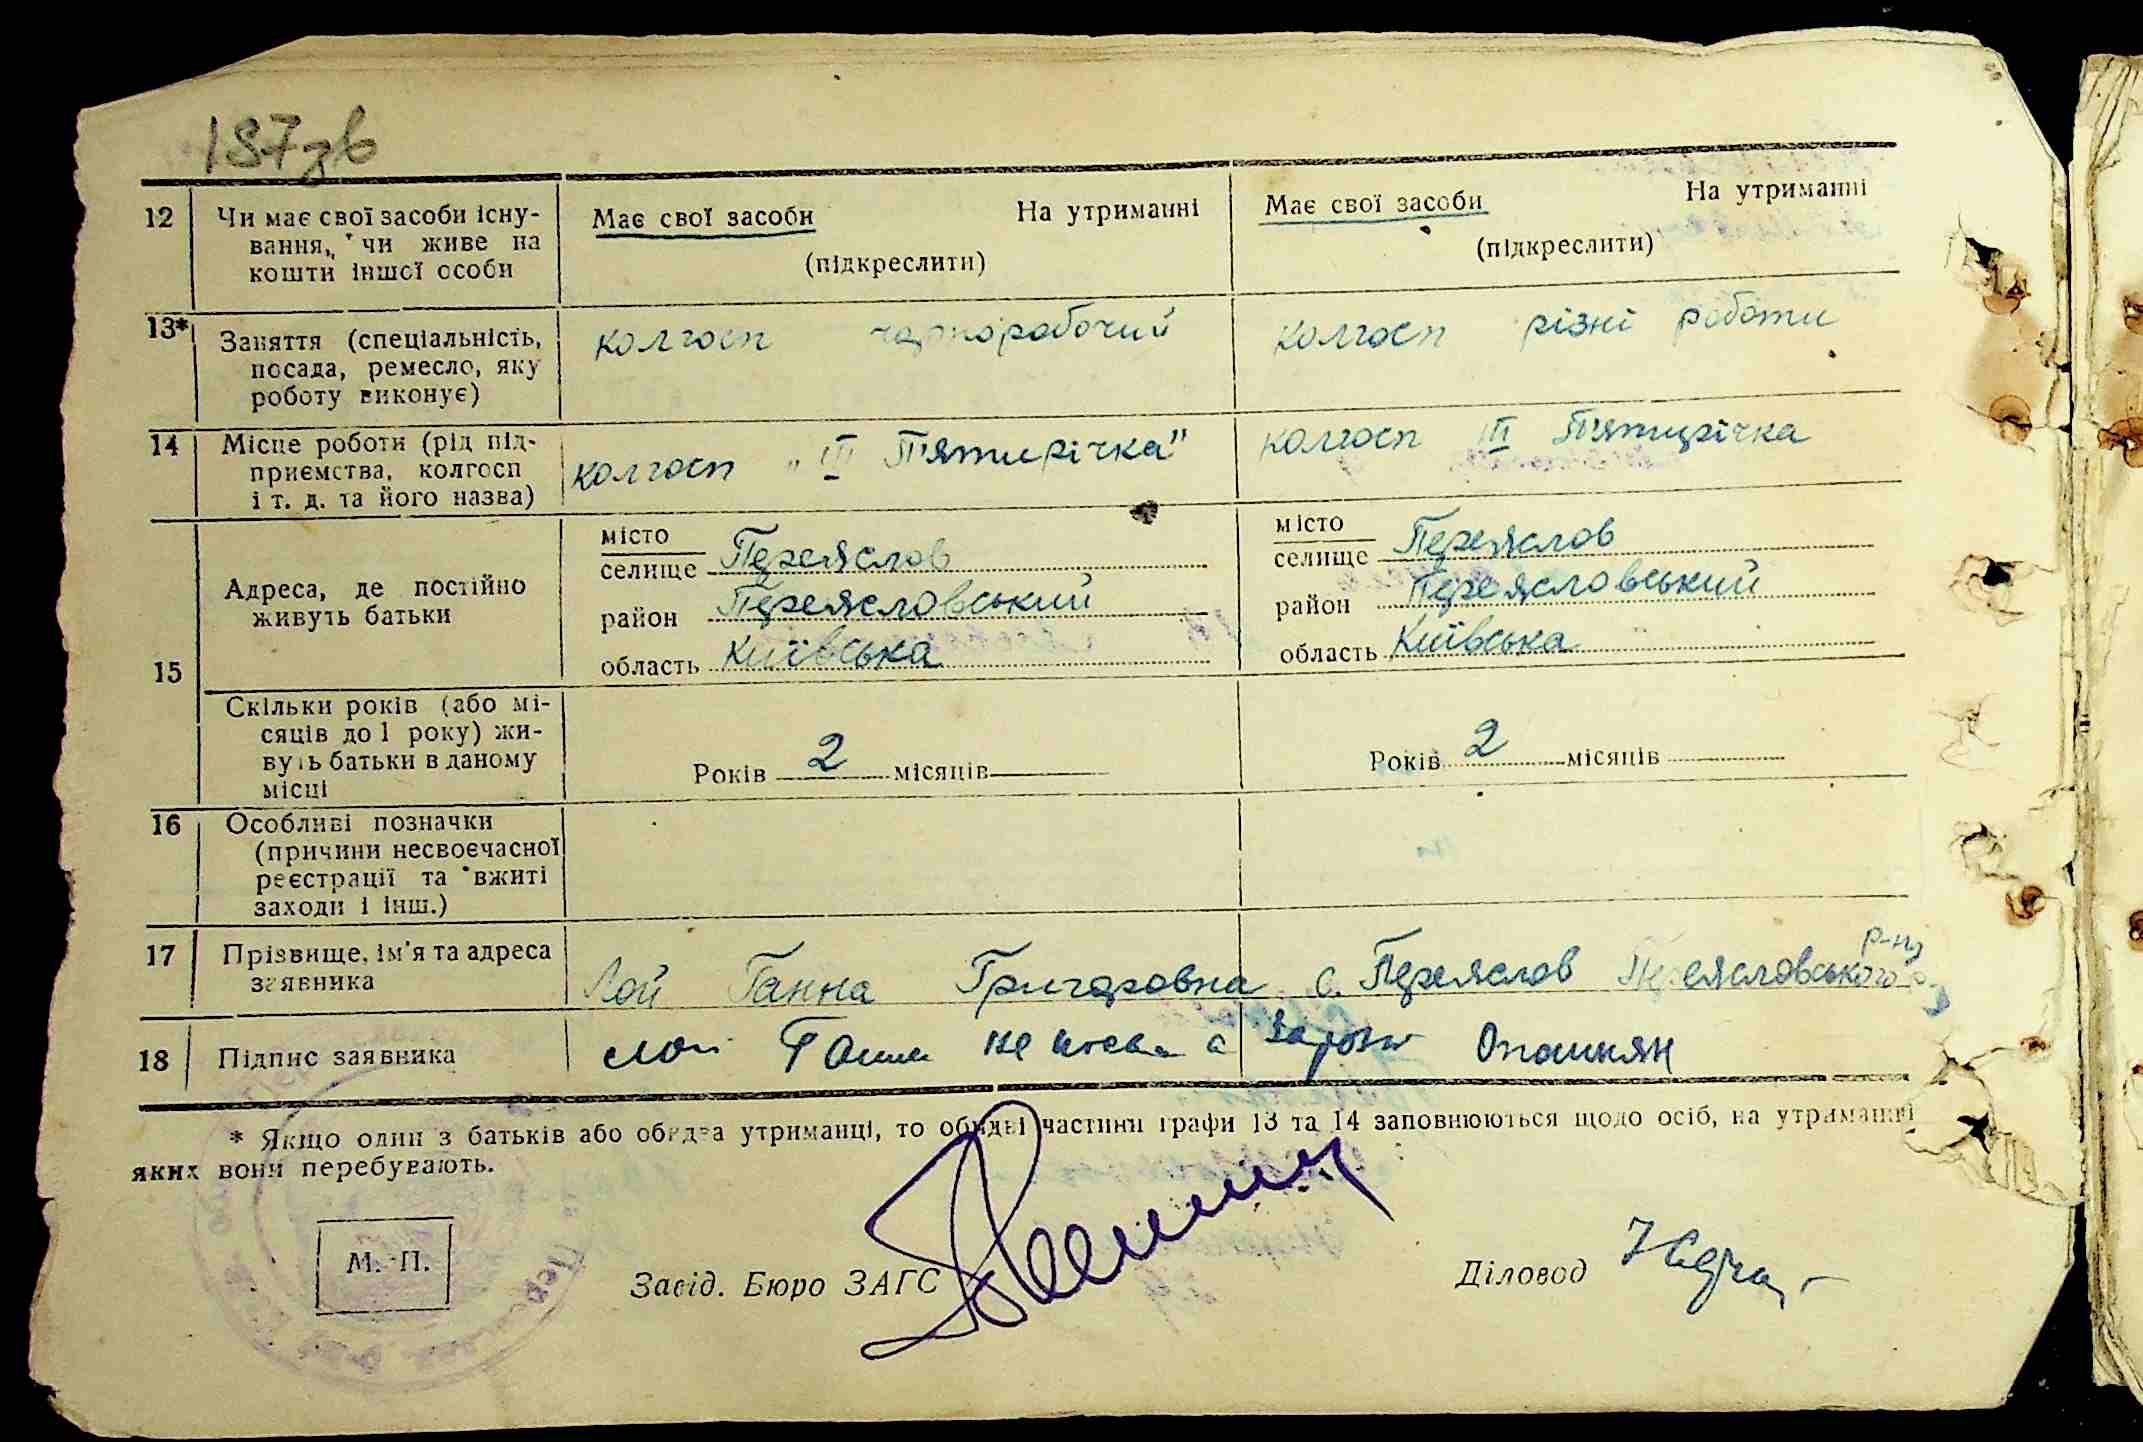 187зв
12 Чи має свої засоби існу-
вання, чи живе на
кошти іншої особи
Має свої засоби На утриманні
(підкреслити)
Має свої засоби На утриманні
(підкреслити)
13* Заняття (спеціальність,
посада, ремесло, яку
роботу виконує)
колгосп чорноробочий
колгосп різні роботи
14 Місце роботи (рід під-
приємства, колгосп
і т. д. та його назва)
колгосп „III П'ятирічка"
колгосп III П'ятирічка
15 Адреса, де постійно
живуть батьки
місто
селище Переяслов
район Переясловський
область Київська
місто
селище Переяслов
район Переясловський
область Київська
Скільки років (або мі-
сяців до 1 року) жи-
вуть батьки в даному
місці
Років 2 місяців
Років 2 місяців
16 Особливі позначки
(причини несвоєчасної
реєстрації та вжиті
заходи і інш.)
17 Прізвище, ім'я та адреса
заявника
Лой Ганна Григоровна с. Переяслов Переясловського р-ну
18 Підпис заявника
Лой Ганна
* Якщо один з батьків або обидва утриманці, то обидві частини графи 13 та 14 заповнюються щодо осіб, на утриманні
яких вони перебувають.
М. П.
Завід. Бюро ЗАГС
Діловод